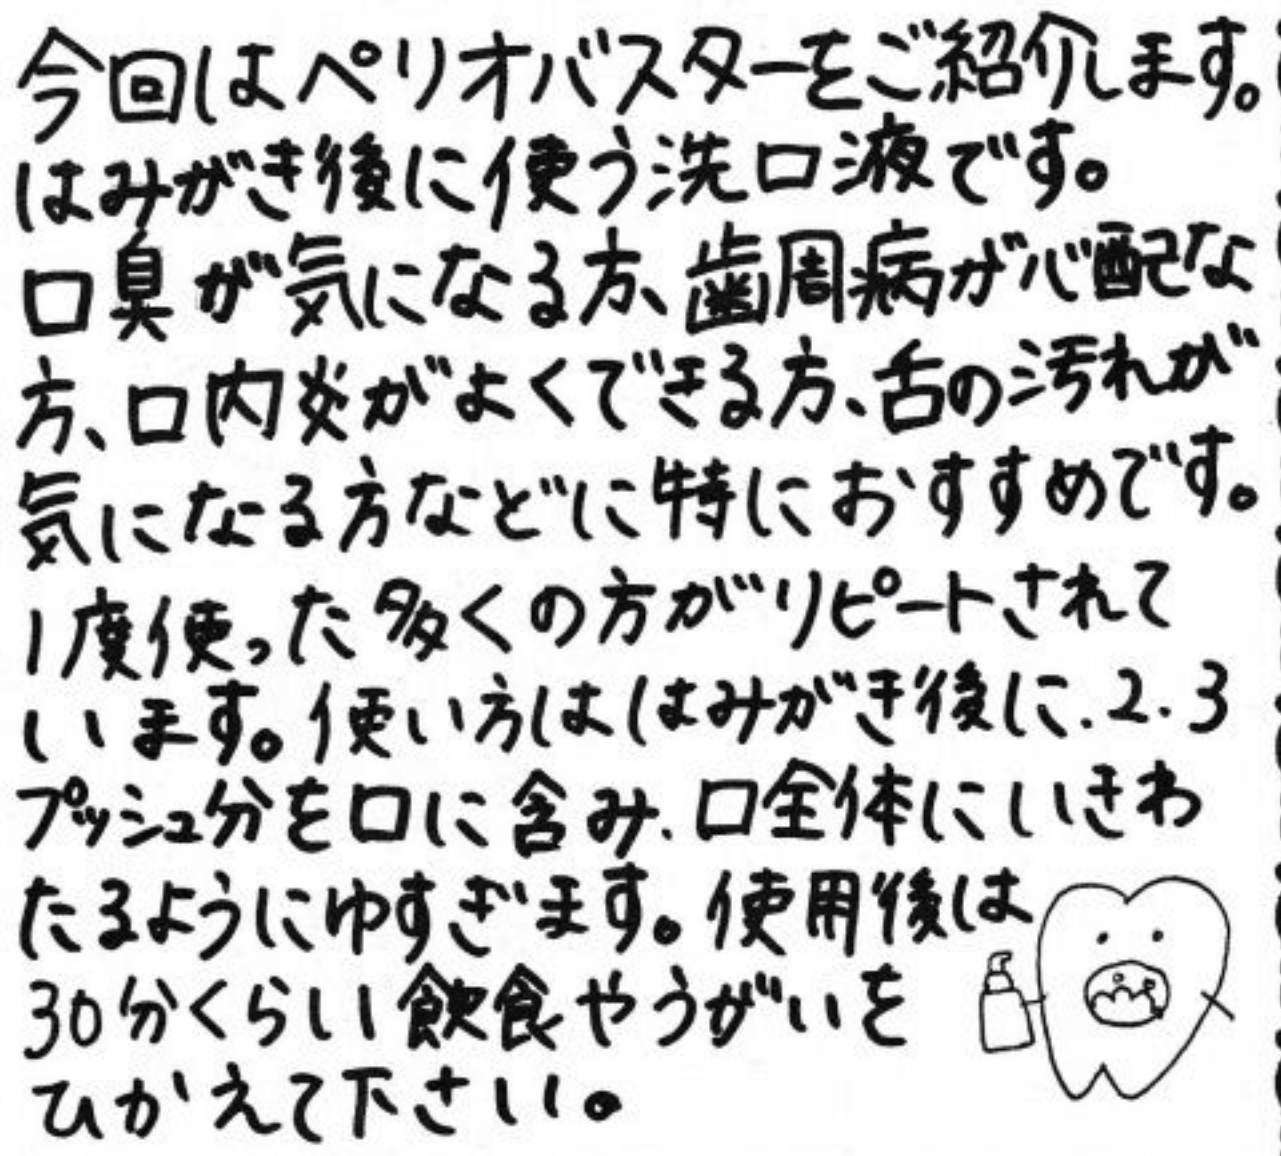 今回はペリオバスターをご紹介します。
はみがき後に使う洗口液です。
口臭が気になる方、歯周病が心配な
方、口内炎がよくできる方、舌の汚れが
気になる方などに特におすすめです。
1度使った多くの方がリピートされて
います。使い方ははみがき後に、2・3
プッシュ分を口に含み、口全体にいきわ
たるようにゆすぎます。使用後は
30分くらい飲食やうがいを
ひかえて下さい。